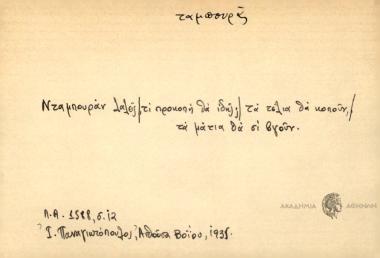 ταμπουρᾶς
Νταμπουράν λαλεῖς/τί προκοπή θά ἰδῆς/τά τέλια θά κοποῦν,/
τά μάτια θά σὶ βγοῦν.
Λ.Α. 1588, σ. 12
Ἰ. Παναγιωτόπουλος, Βοΐου, 1935.
ΑΚΑΔΗΜΙΑ ΑΘΗΝΩΝ